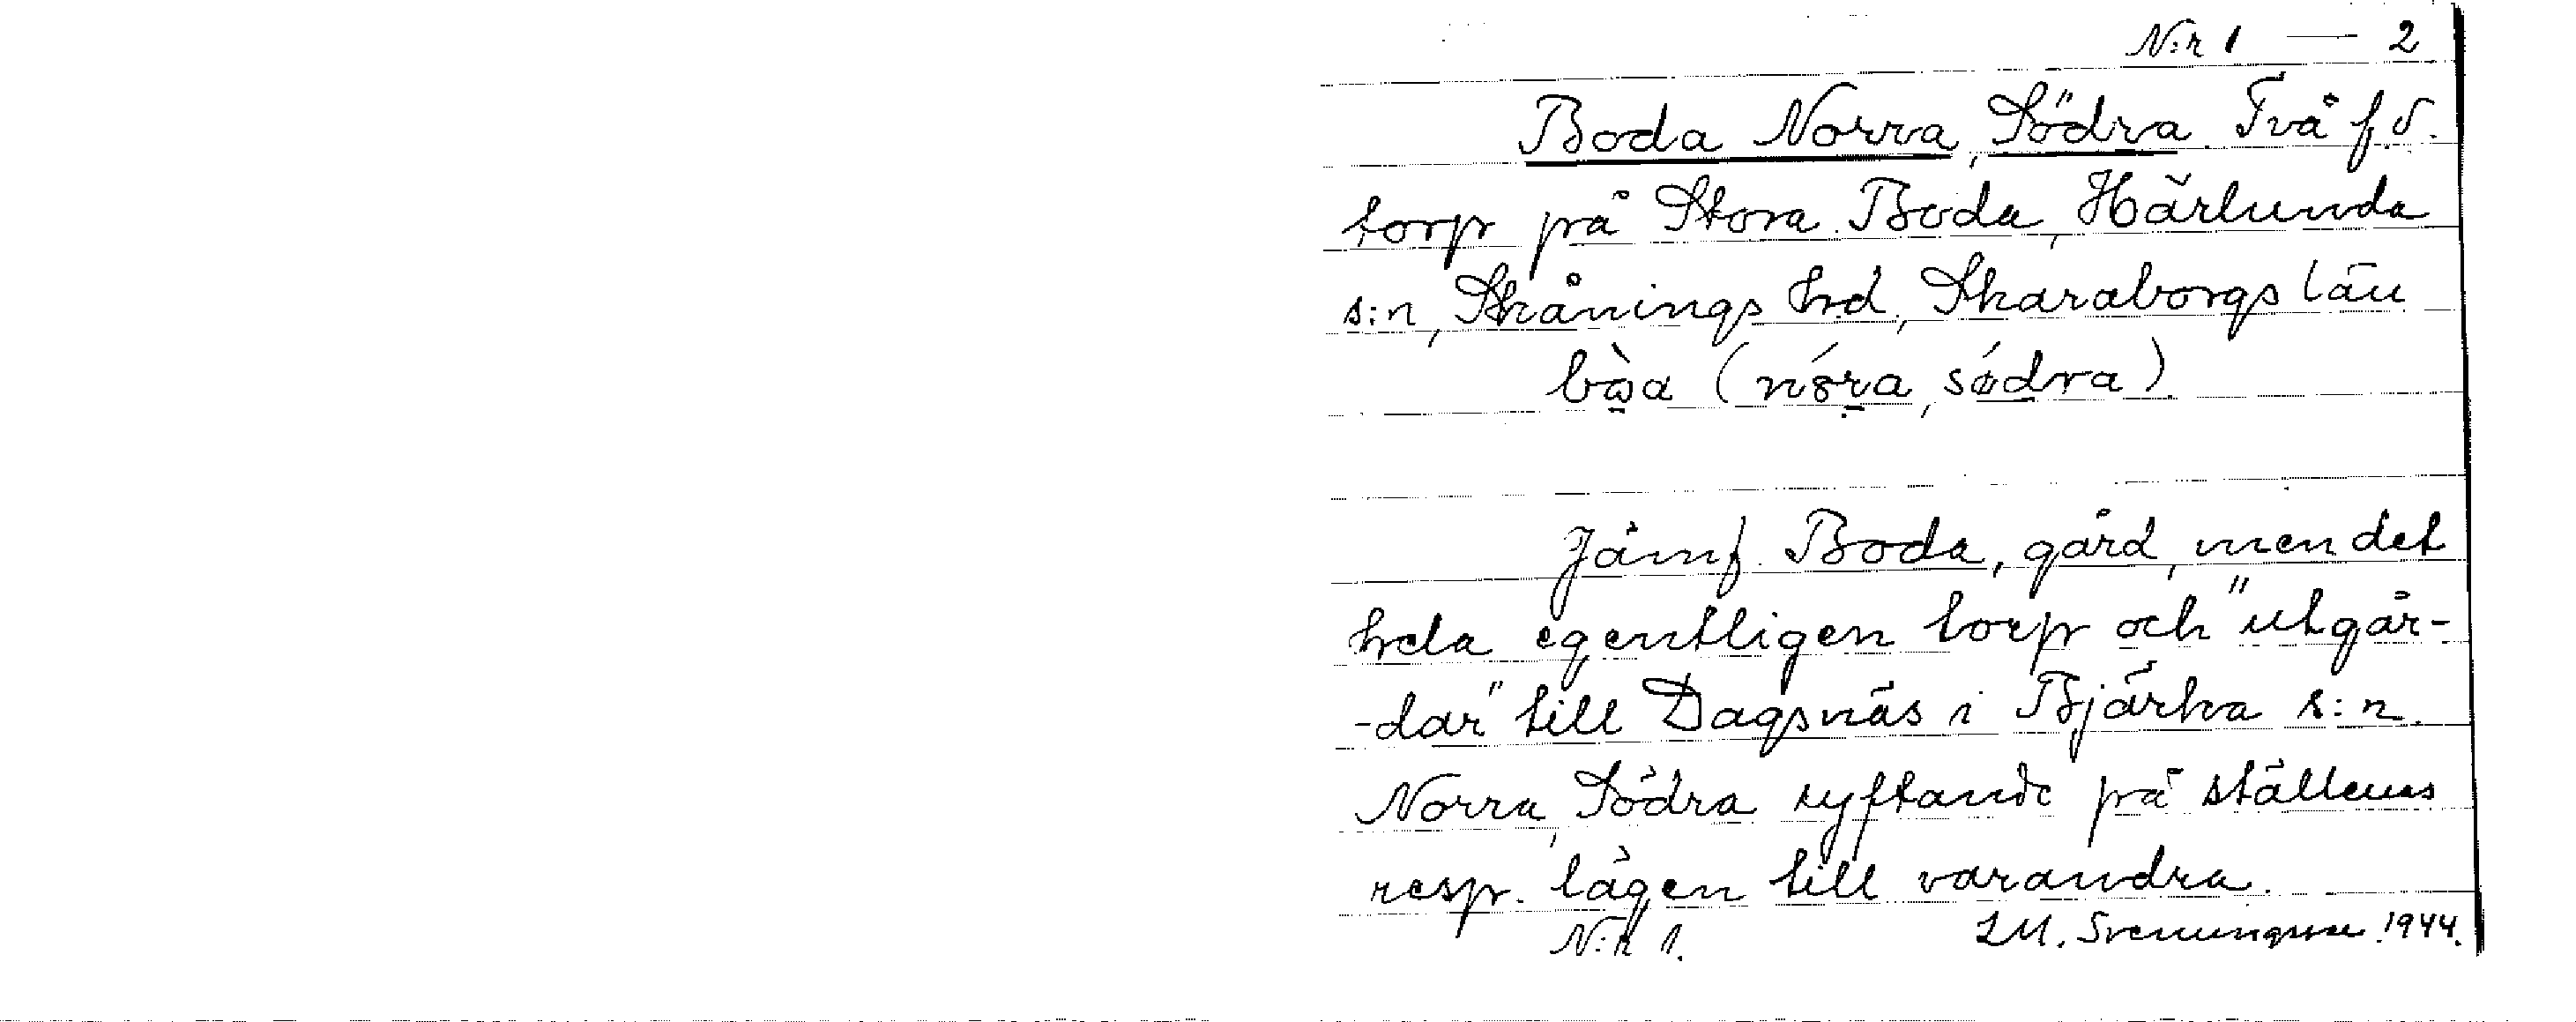 N:r 1 — 2
Boda Norra, Södra. Två f.d.
torp på Stora Boda, Härlunda
s:n, Skånings hrd, Skaraborgs län
(nóra, södra).
Jämf. Boda, gård, men det
hela egentligen torp och "utgår-
-dar" till Dagsnäs i Bjärka s:n.
Norra, Södra syftande på ställenas
resp. lägen till varandra.
N:r 1. LM. Svenungsson 1944.